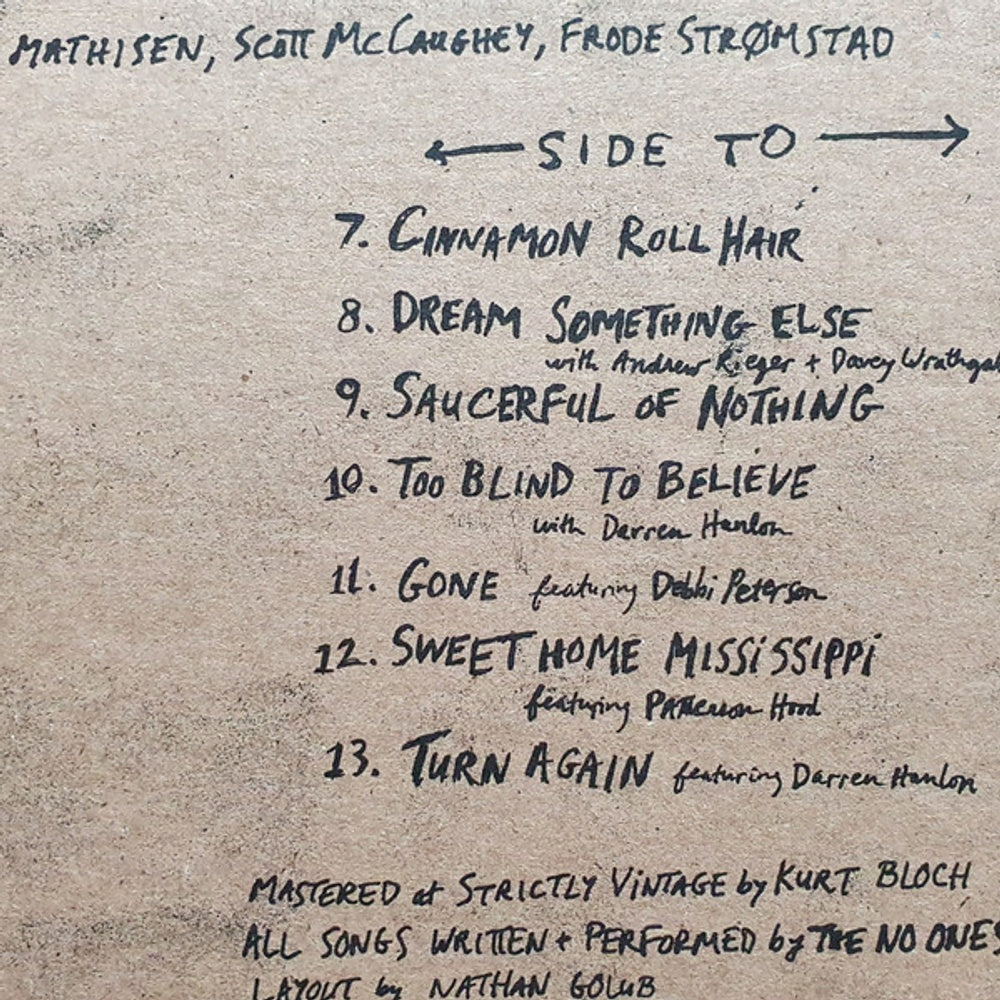 MATHISEN, SCOTT MCCAUGHEY, FRODE STRØMSTAD
← SIDE TO →
7. CINNAMON ROLL HAIR
8. DREAM SOMETHING ELSE
with Andrew Rieger + Davey
9. SAUCERFUL OF NOTHING
10. TOO BLIND TO BELIEVE
with Darren Hanlon
11. GONE featuring Debbi Peterson
12. SWEET HOME MISSISSIPPI
featuring Patterson Hood
13. TURN AGAIN featuring Darren Hanlon
MASTERED at STRICTLY VINTAGE by KURT BLOCH
ALL SONGS WRITTEN + PERFORMED by THE NO ONES
LAYOUT by NATHAN GOLUB